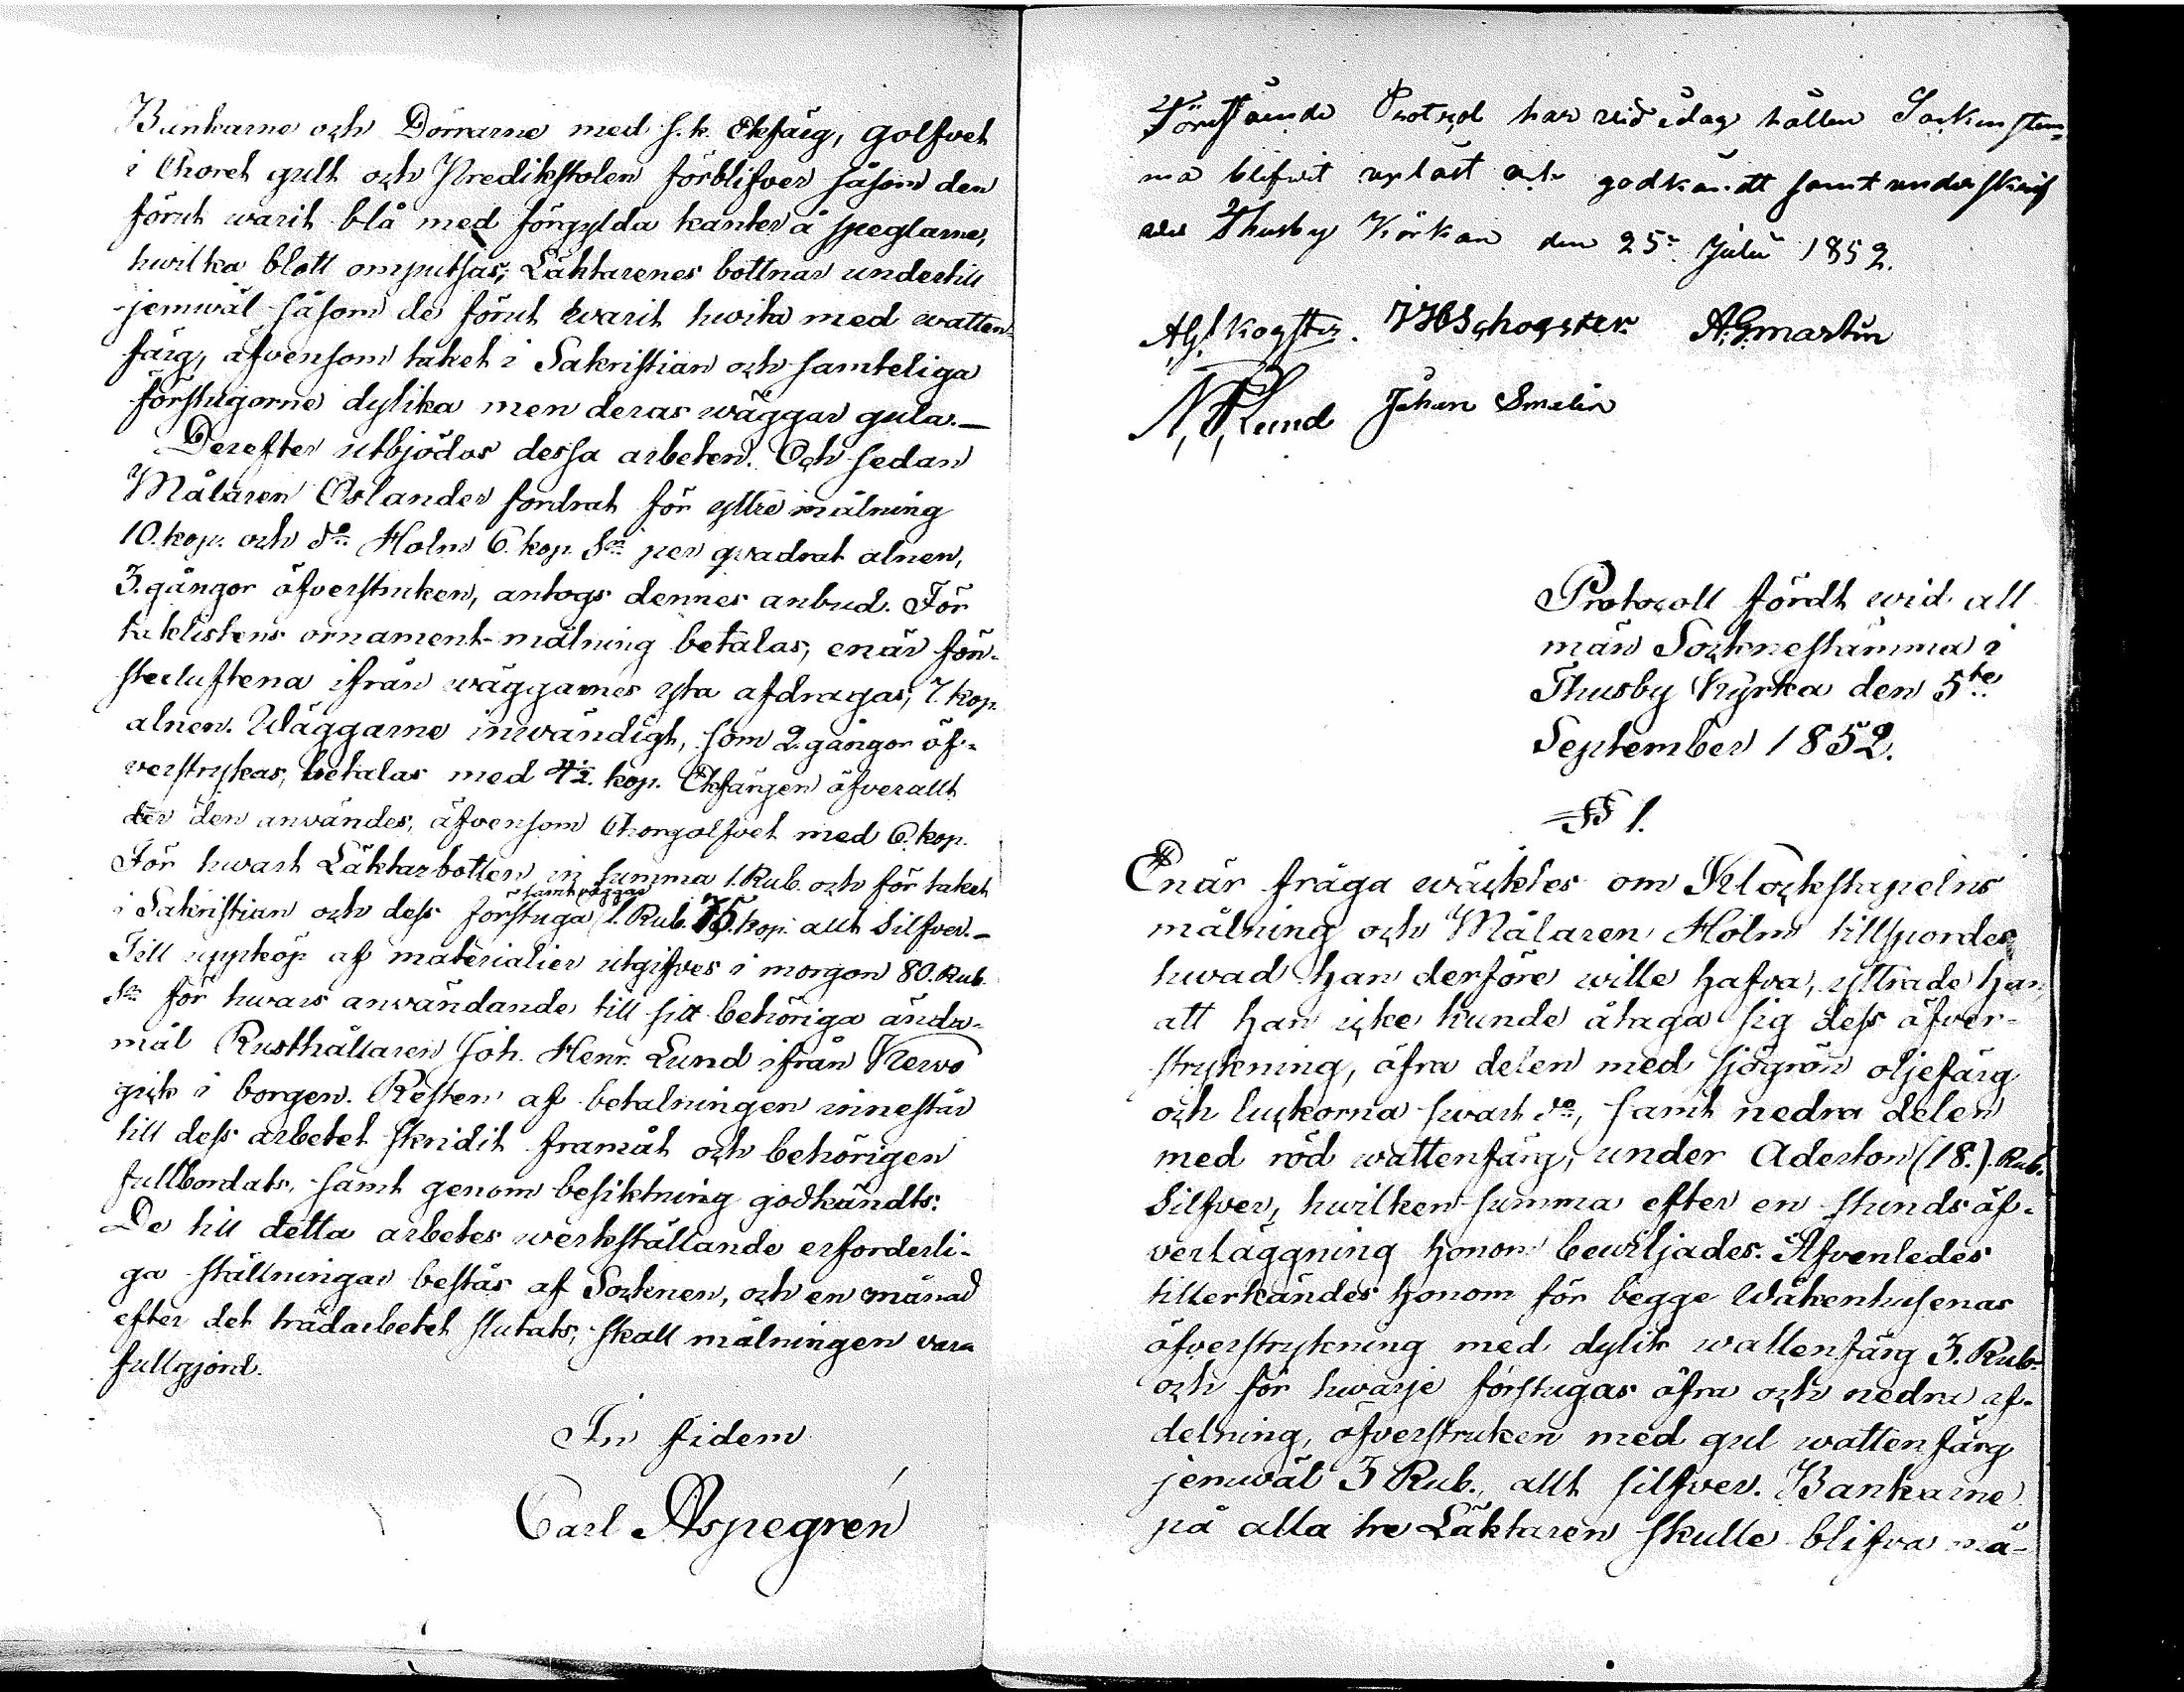 Bänkarne och Dörrarne med s.k. Ekfärg, golfvet
i Choret gult och Predikstolen förblifver såsom den
förut warit blå med förgylda kanter å speglarne,
hwilka blott omputsas; Läktarenes bottnar undertill
jemwäl såsom de förut warit hwita med watten-
färg, äfvensom taket i Sakristian och samteliga
förstugorne dylika men deras wäggar gula.—
Derefter utbjödos dessa arbeten. Och sedan
Målaren Oslander fordrat för yttre målning
10. kop. och do Holm 6. kop. Sr per qvadrat alnen,
3. gångor öfverstruken, antogs dennes anbud. För
taklistens ornament-målning betalas, enär fön-
sterluftena ifrån wäggarnes yta afdragas, 7. kop.
alnen. Wäggarne inwändigt, som 2. gångor öf-
verstrykas, betalas med 4½. kop. Ekfärgen öfverallt
der den användes, äfvensom Chorgolfvet med 6. kop.
För hwart Läktarbotten in summa 1. Rub. och för taket
samt väggar
i Sakristian och dess förstuga 1. Rub. 75. kop. allt Silfver.—
Till uppköp af materialier utgifves i morgon 80. Rub.
Sr för hwars användande till sitt behöriga ända-
mål Rusthållaren Joh. Henr. Lund ifrån Rewo
gick i borgen. Resten af betalningen innestår
till dess arbetet skridit framåt och behörigen
fullbordats, samt genom besiktning godkändts.
De till detta arbetes werkställande erforderli-
ga ställningar bestås af Socknen, och en månad
efter det trädarbetet slutats, skall målningen vara
fullgjord.
In fidem
Carl Aspegrén
Förestående Protocol har vid idag hållen Sockenstem-
ma blifvit upläst och godkändt samt underskrif
Thusby Körkan den 25. Julii 1852.
A.G. Skogster. J H Schogster A.G. Martin
Lund Johan Smalin
Protocoll fördt wid all
män Socknestämma i
Thusby Kyrka den 5te
September 1852.
§ 1.
Enär fråga wäcktes om Klockstapelns
målning och Målaren Holm tillspordes
hwad han derföre wille hafva, yttrade han,
att han icke kunde åtaga sig dess öfver-
strykning, öfra delen med sjögrön oljefärg
och luckorna swart do, samt nedra delen
med röd wattenfärg, under Aderton (18.). Rub.
Silfver, hwilken summa efter en stunds öf-
verläggning honom bewiljades. Äfvenledes
tillerkändes honom för begge Wåkenhusenas
öfverstrykning med dylik wattenfärg 3. Rub.
och för hwarje förstugas öfra och nedra af-
delning, öfverstruken med gul wattenfärg
jemwäl 3 Rub., allt silfver. Bänkarne
på alla tre Läktaren skulle blifva må-